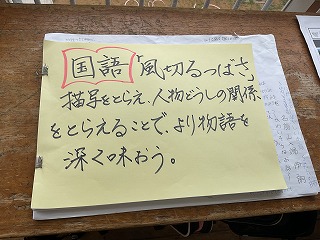 国語 「風切るつばさ」
描写をとらえ、人物どうしの関係
をとらえることで、より物語を
深く味おう。